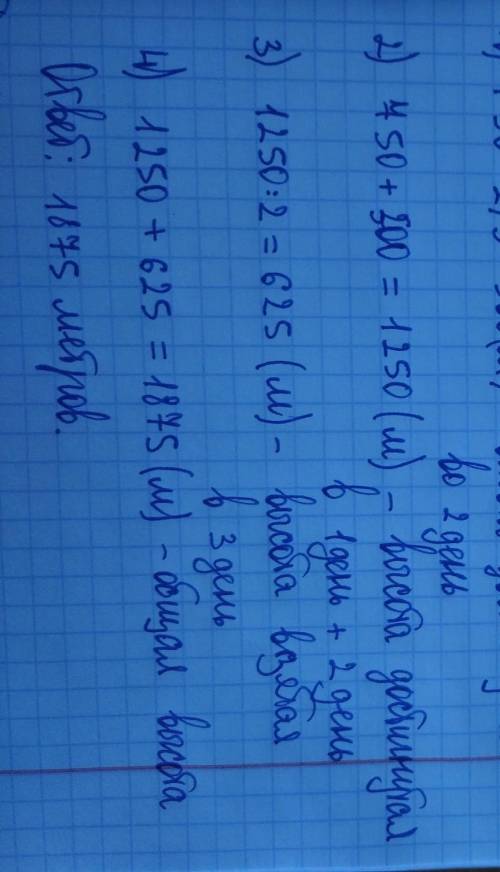 во 2 день
2) 750 + 500 = 1250 (м) – высота достигнутая
в 1 день + 2 день
3) 1250:2 = 625 (м) – высота взятая
в 3 день
4) 1250 + 625 = 1875 (м) – общая высота
Ответ: 1875 метров.